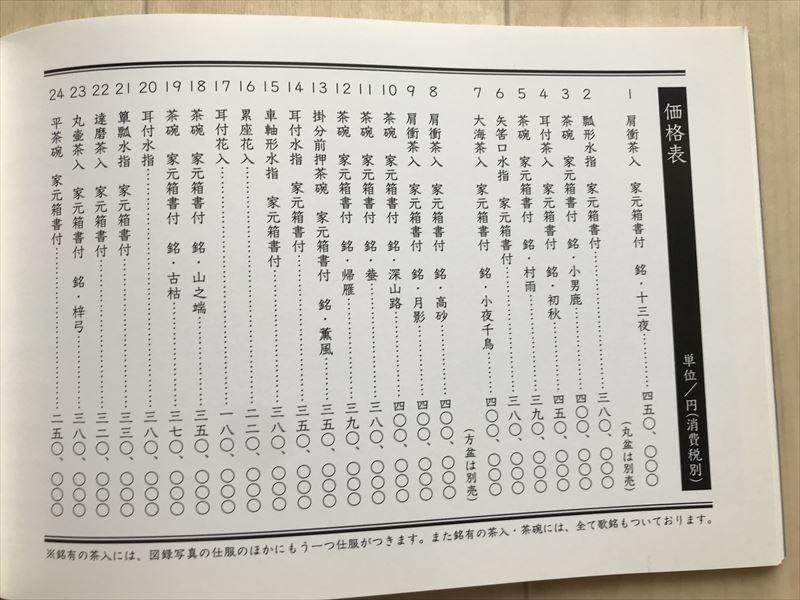 価格表
単位／円(消費税別)
1 肩衝茶入 家元箱書付 銘・十三夜…………四五〇、〇〇〇
(丸盆は別売)
2 瓢形水指 家元箱書付…………三八〇、〇〇〇
3 茶碗 家元箱書付 銘・小男鹿…………四〇〇、〇〇〇
4 耳付茶入 家元箱書付 銘・初秋…………四五〇、〇〇〇
5 茶碗 家元箱書付 銘・村雨…………三九〇、〇〇〇
6 矢筈口水指 家元箱書付…………三八〇、〇〇〇
7 大海茶入 家元箱書付 銘・小夜千鳥…………四〇〇、〇〇〇
(方盆は別売)
8 肩衝茶入 家元箱書付 銘・高砂…………四〇〇、〇〇〇
9 肩衝茶入 家元箱書付 銘・月影…………四〇〇、〇〇〇
10 茶碗 家元箱書付 銘・深山路…………四〇〇、〇〇〇
11 茶碗 家元箱書付 銘・…………三八〇、〇〇〇
12 茶碗 家元箱書付 銘・帰雁…………三九〇、〇〇〇
13 掛分前押茶碗 家元箱書付 銘・薫風…………三五〇、〇〇〇
14 耳付水指 家元箱書付…………三五〇、〇〇〇
15 車軸形水指 家元箱書付…………三八〇、〇〇〇
16 累座花入…………二二〇、〇〇〇
17 耳付花入…………一八〇、〇〇〇
18 茶碗 家元箱書付 銘・山之端…………三五〇、〇〇〇
19 茶碗 家元箱書付 銘・古枯…………三七〇、〇〇〇
20 耳付水指…………三八〇、〇〇〇
21 箪瓢水指 家元箱書付…………三三〇、〇〇〇
22 達磨茶入 家元箱書付…………三二〇、〇〇〇
23 丸壷茶入 家元箱書付 銘・梓弓…………三八〇、〇〇〇
24 平茶碗 家元箱書付…………二五〇、〇〇〇
※銘有の茶入には、図録写真の仕服のほかにもう一つ仕服がつきます。また銘有の茶入・茶碗には、全て歌銘もついております。